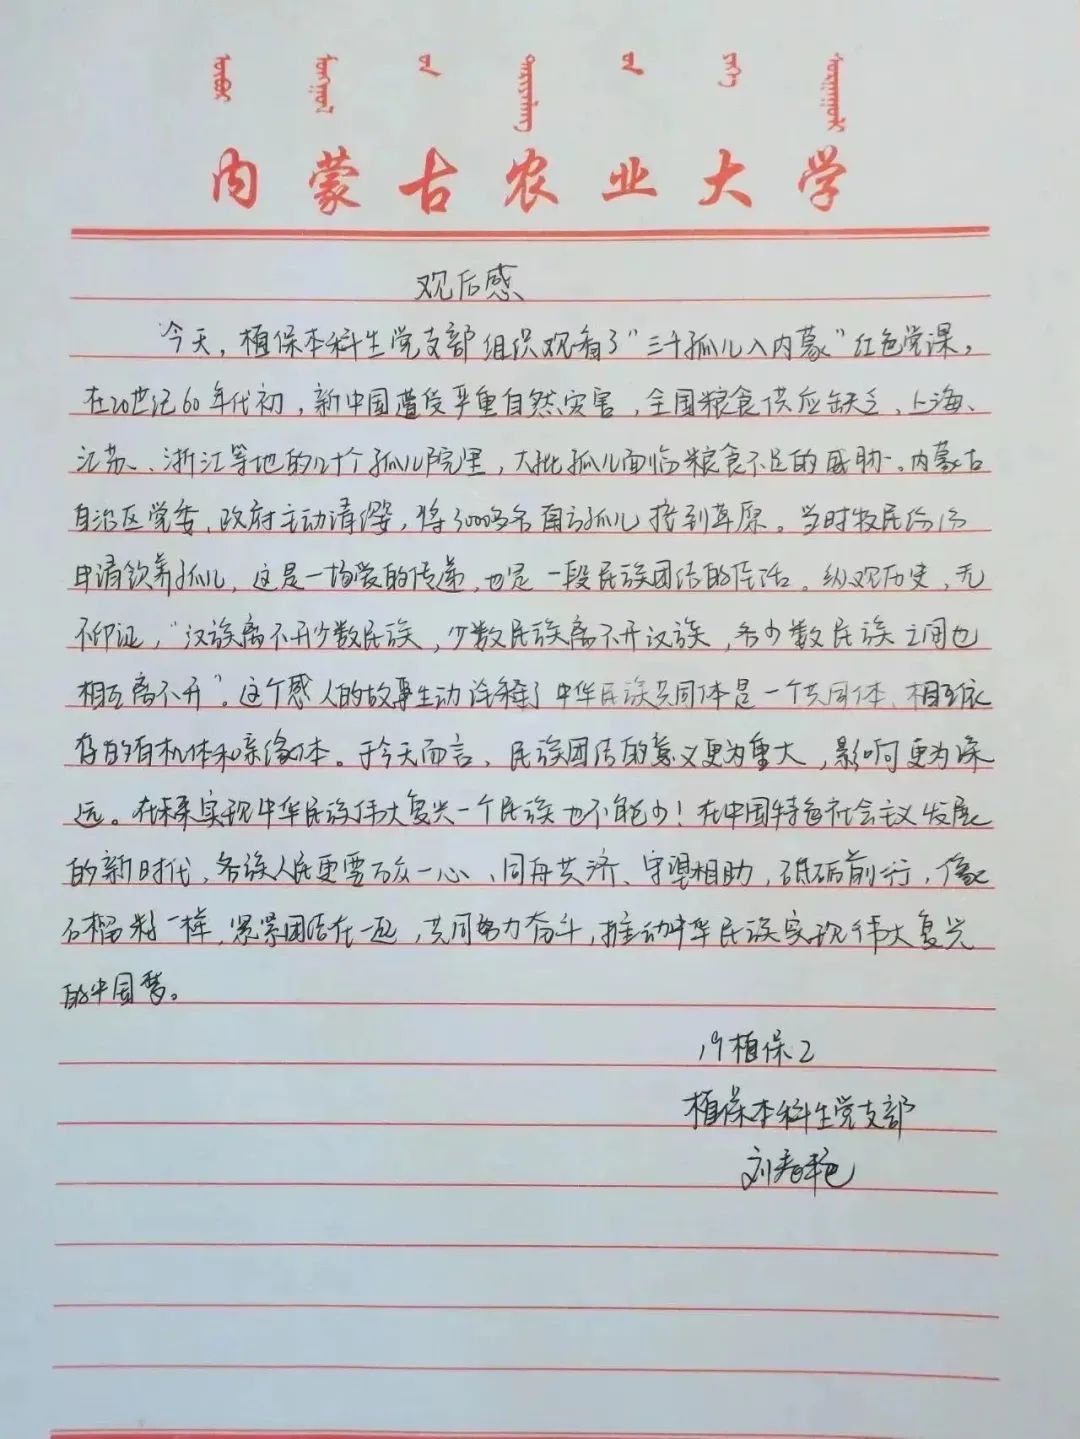 内蒙古农业大学
观后感
今天，植保本科生党支部组织观看了“三千孤儿入内蒙”红色党课，
在20世纪60年代初，新中国遭受严重自然灾害，全国粮食供应缺乏，上海、
江苏、浙江等地的几十个孤儿院里，大批孤儿面临粮食不足的威胁。内蒙古
自治区党委、政府主动请缨，将3000多名南方孤儿接到草原。当时牧民纷纷
申请领养孤儿，这是一场爱的传递，也是一段民族团结的佳话。纵观历史，无
不印证，“汉族离不开少数民族，少数民族离不开汉族，各少数民族之间也
相互离不开”。这个感人的故事生动诠释了中华民族共同体是一个共同体、相互依
存的有机体和亲缘体。于今天而言，民族团结的意义更为重大，影响更为深
远。在实现中华民族伟大复兴一个民族也不能少！在中国特色社会主义发展
的新时代，各族人民更要万众一心、同舟共济、守望相助，砥砺前行，像
石榴籽一样，紧紧团结在一起，共同努力奋斗，推动中华民族实现伟大复兴
的中国梦。
19植保2
植保本科生党支部
刘春艳